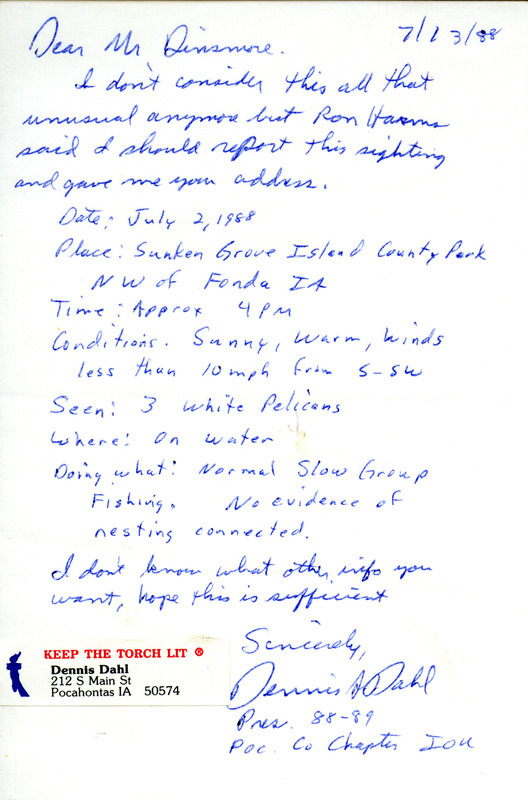 7/13/88
Dear Mr Dinsmore.
I don't consider this all that
unusual anymore but Ron Harms
said I should report this sighting
and gave me your address.
Date: July 2, 1988
Place: Sunken Grove Island County Park
NW of Fonda IA
Time: Approx 4 PM
Conditions. Sunny, Warm, Winds
less than 10 mph from S-SW
Seen: 3 White Pelicans
Where: On water
Doing what: Normal Slow Group
Fishing. No evidence of
nesting connected.
I don't know what other info you
want, hope this is sufficient
Sincerely,
Dennis A Dahl
Pres. 88-89
Poc. Co Chapter IOU
KEEP THE TORCH LIT ®
Dennis Dahl
212 S Main St
Pocahontas IA 50574